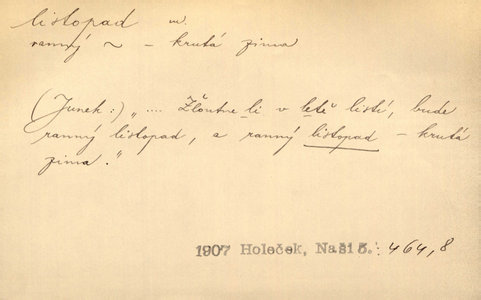 listopad m.
ranný ~ – krutá zima
(Junek:) „.... Žloutne-li v létě listí, bude
ranný listopad, a ranný listopad – krutá
zima.“
1907 Holeček, Naši 5.: 464,8